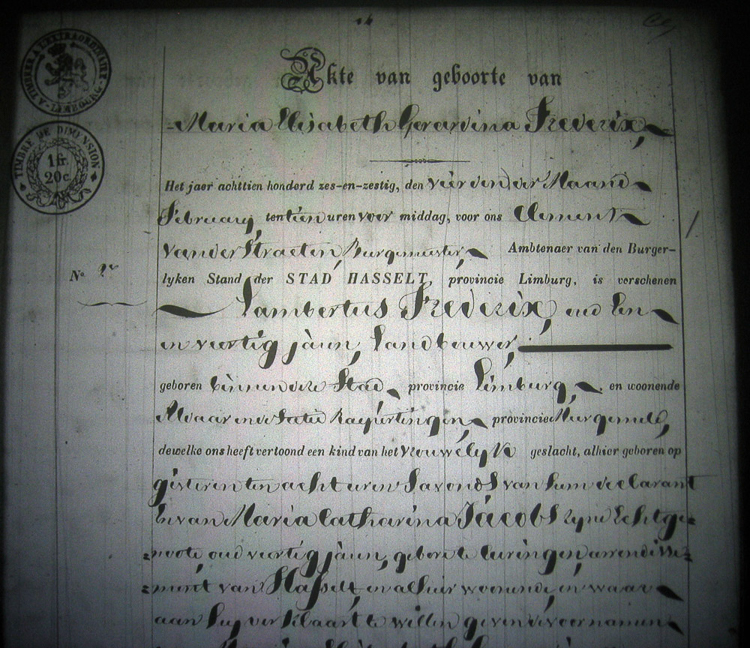 TIMBRE EXTRAORDINAIRE
LIMBOURG
TIMBRE DE DIMENSION
1 fr.
20 c.
Akte van geboorte van
Maria Elisabeth Gerardina Frederix,
Het jaer achttien honderd zes-en-zestig, den vier den der Maand
February, ten tien uren voor middag, voor ons Clement
Vander Straeten, Burgemeister, Ambtenaer van den Burger-
lyken Stand der STAD HASSELT, provincie Limburg, is verschenen
N°
Lambertus Frederix, oud Een
en veertig jaren, Landbouwer,
geboren binnen deze Stad, provincie Limburg, en woonende
provincie
dewelke ons heeft vertoond een kind van het vrouwelyk geslacht, alhier geboren op
gisteren ten acht uren S'avonds van hem declarant
En van Maria Catharina Jacobs zyne Echtge-
noote, oud veertig jaren, geboren te Curingen, arrondisse-
ment van Hasselt, en alhier woonende, en waar-
aan hy verklaart te willen geven de voornamen